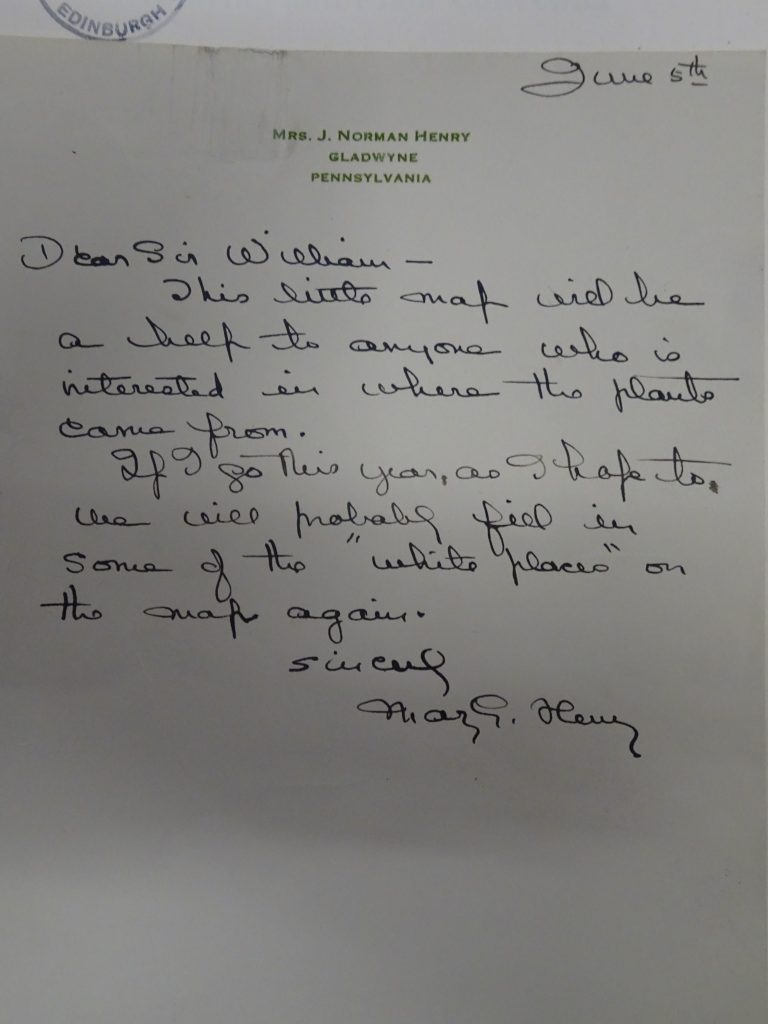 EDINBURGH
June 5th
MRS. J. NORMAN HENRY
GLADWYNE
PENNSYLVANIA
Dear Sir William —
This little map will be
a help to anyone who is
interested in where the plants
came from.
If I go this year, as I hope to,
we will probably fill in
some of the "white places" on
the map again.
Sincerely
Mary G. Henry